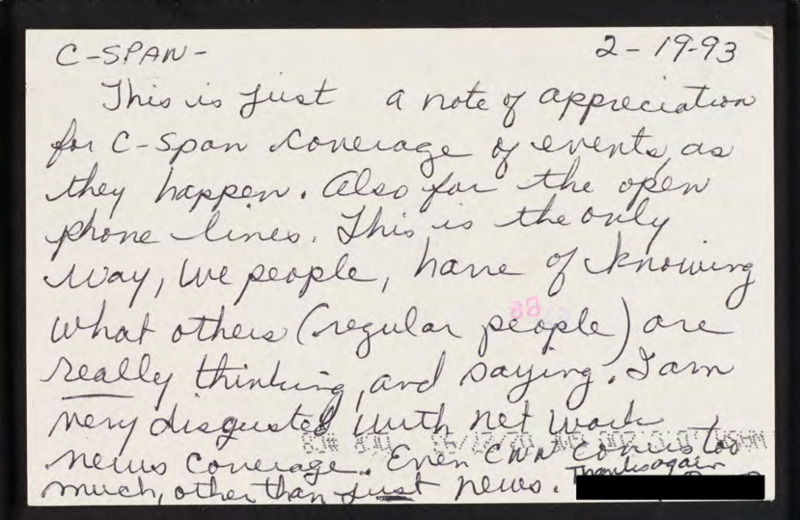 C-SPAN- 2-19-93
This is just a note of appreciation
for C-Span coverage of events, as
they happen. Also for the open
phone lines. This is the only
way, we people, have of knowing
what others (regular people) are
really thinking, and saying. I am
very disgusted with net work
news coverage. Even CNN covers too
much, other than just news. Thanks again